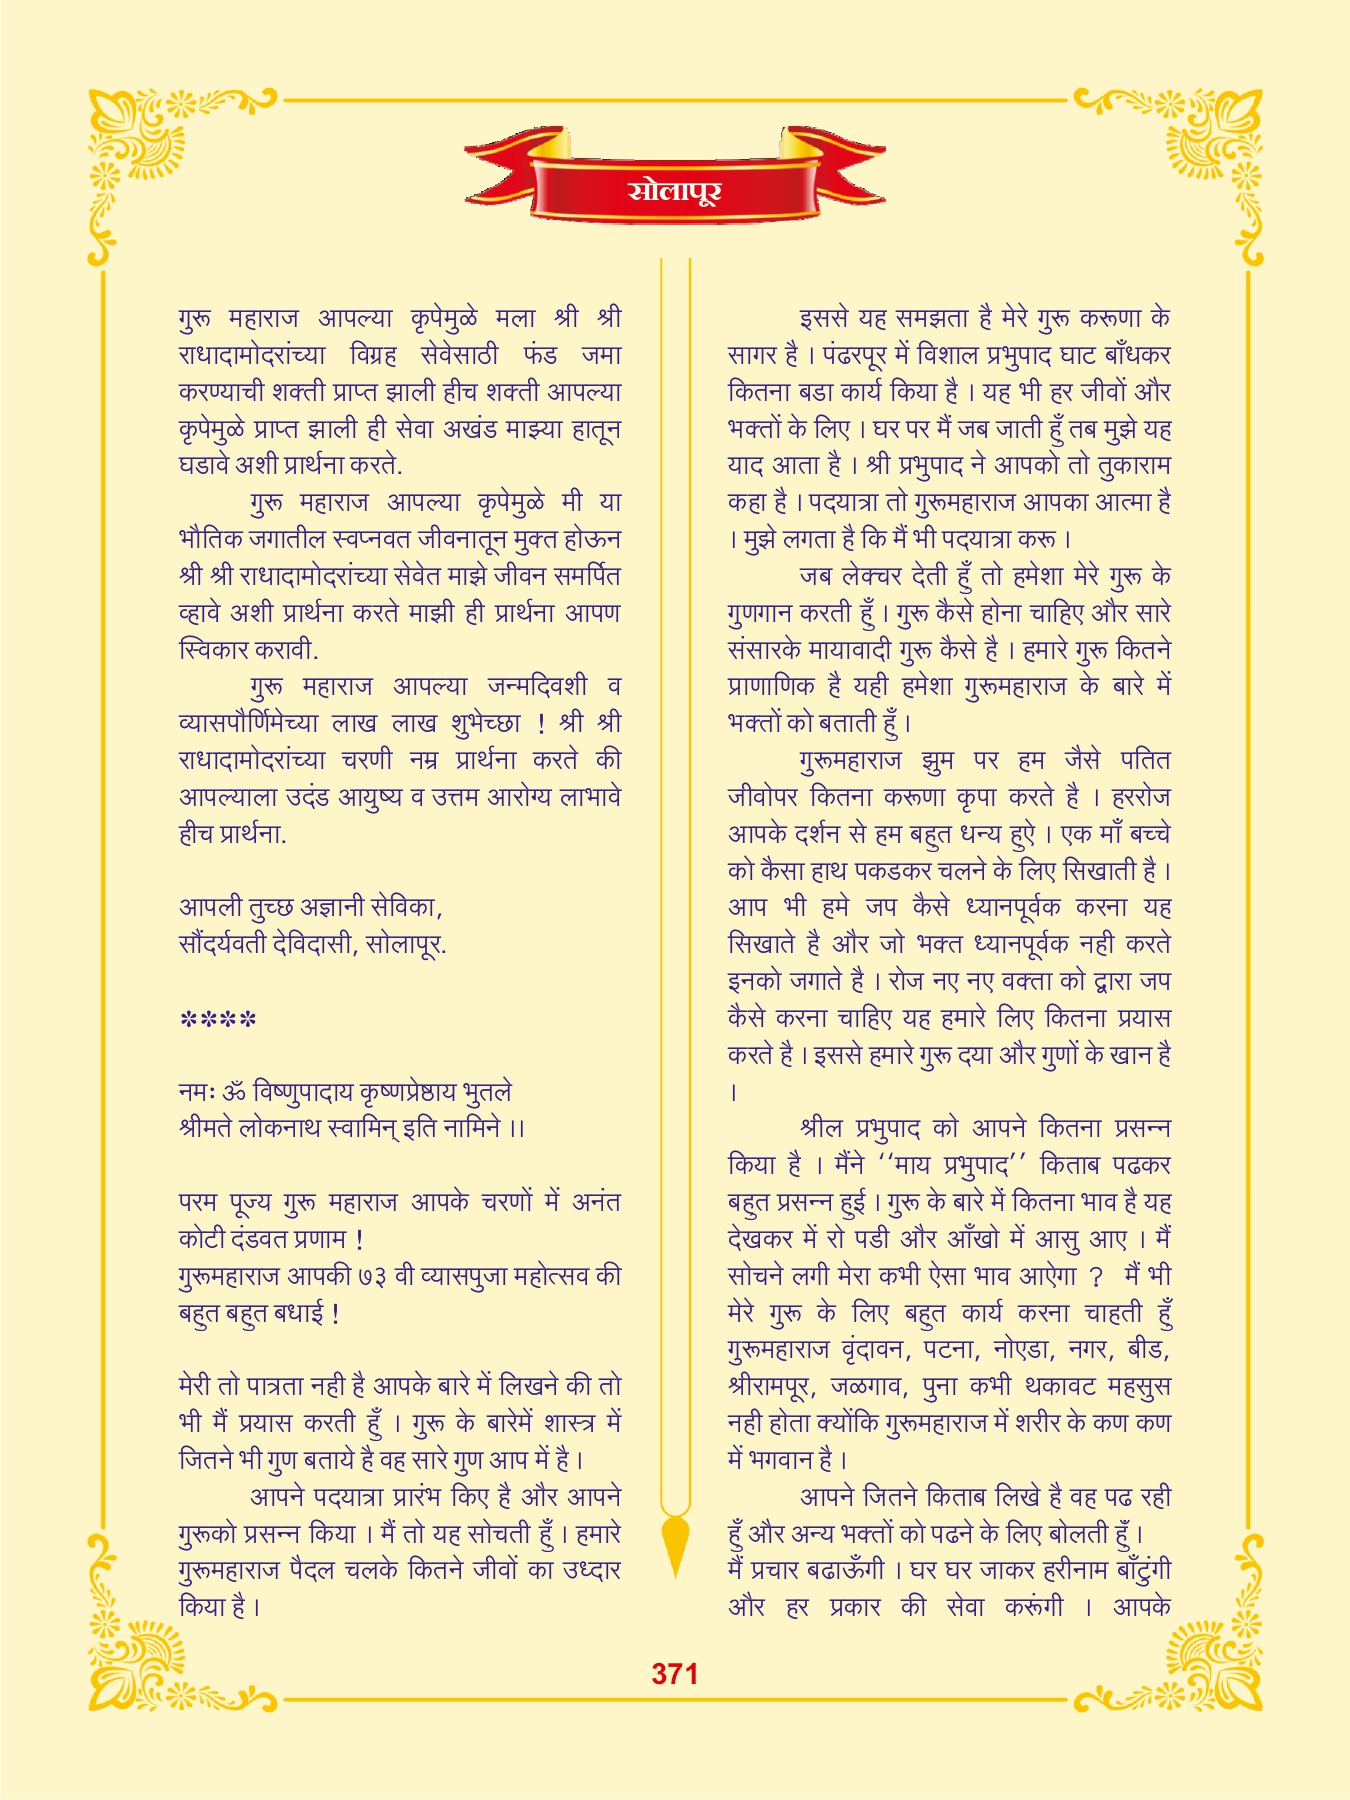 सोलापूर
गुरू महाराज आपल्या कृपेमुळे मला श्री श्री
राधादामोदरांच्या विग्रह सेवेसाठी फंड जमा
करण्याची शक्ती प्राप्त झाली हीच शक्ती आपल्या
कृपेमुळे प्राप्त झाली ही सेवा अखंड माझ्या हातून
घडावे अशी प्रार्थना करते.
गुरू महाराज आपल्या कृपेमुळे मी या
भौतिक जगातील स्वप्नवत जीवनातून मुक्त होऊन
श्री श्री राधादामोदरांच्या सेवेत माझे जीवन समर्पित
व्हावे अशी प्रार्थना करते माझी ही प्रार्थना आपण
स्विकार करावी.
गुरू महाराज आपल्या जन्मदिवशी व
व्यासपौर्णिमेच्या लाख लाख शुभेच्छा ! श्री श्री
राधादामोदरांच्या चरणी नम्र प्रार्थना करते की
आपल्याला उदंड आयुष्य व उत्तम आरोग्य लाभावे
हीच प्रार्थना.
आपली तुच्छ अज्ञानी सेविका,
सौंदर्यवती देविदासी, सोलापूर.
****
नमः ॐ विष्णुपादाय कृष्णप्रेष्ठाय भुतले
श्रीमते लोकनाथ स्वामिन् इति नामिने ।।
परम पूज्य गुरू महाराज आपके चरणों में अनंत
कोटी दंडवत प्रणाम !
गुरूमहाराज आपकी ७३ वी व्यासपुजा महोत्सव की
बहुत बहुत बधाई !
मेरी तो पात्रता नही है आपके बारे में लिखने की तो
भी मैं प्रयास करती हूँ । गुरू के बारेमें शास्त्र में
जितने भी गुण बताये है वह सारे गुण आप में है ।
आपने पदयात्रा प्रारंभ किए है और आपने
गुरूको प्रसन्न किया । मैं तो यह सोचती हूँ । हमारे
गुरूमहाराज पैदल चलके कितने जीवों का उध्दार
किया है ।
इससे यह समझता है मेरे गुरू करूणा के
सागर है । पंढरपूर में विशाल प्रभुपाद घाट बाँधकर
कितना बडा कार्य किया है । यह भी हर जीवों और
भक्तों के लिए । घर पर मैं जब जाती हूँ तब मुझे यह
याद आता है । श्री प्रभुपाद ने आपको तो तुकाराम
कहा है । पदयात्रा तो गुरूमहाराज आपका आत्मा है
। मुझे लगता है कि मैं भी पदयात्रा करू ।
जब लेक्चर देती हूँ तो हमेशा मेरे गुरू के
गुणगान करती हूँ । गुरू कैसे होना चाहिए और सारे
संसारके मायावादी गुरू कैसे है । हमारे गुरू कितने
प्राणाणिक है यही हमेशा गुरूमहाराज के बारे में
भक्तों को बताती हूँ ।
गुरूमहाराज झुम पर हम जैसे पतित
जीवोपर कितना करूणा कृपा करते है । हररोज
आपके दर्शन से हम बहुत धन्य हुऐ । एक माँ बच्चे
को कैसा हाथ पकडकर चलने के लिए सिखाती है ।
आप भी हमे जप कैसे ध्यानपूर्वक करना यह
सिखाते है और जो भक्त ध्यानपूर्वक नही करते
इनको जगाते है । रोज नए नए वक्ता को द्वारा जप
कैसे करना चाहिए यह हमारे लिए कितना प्रयास
करते है । इससे हमारे गुरू दया और गुणों के खान है
।
श्रील प्रभुपाद को आपने कितना प्रसन्न
किया है । मैंने ‘‘माय प्रभुपाद’’ किताब पढकर
बहुत प्रसन्न हुई । गुरू के बारे में कितना भाव है यह
देखकर में रो पडी और आँखो में आसु आए । मैं
सोचने लगी मेरा कभी ऐसा भाव आऐगा ? मैं भी
मेरे गुरू के लिए बहुत कार्य करना चाहती हूँ
गुरूमहाराज वृंदावन, पटना, नोएडा, नगर, बीड,
श्रीरामपूर, जळगाव, पुना कभी थकावट महसुस
नही होता क्योंकि गुरूमहाराज में शरीर के कण कण
में भगवान है ।
आपने जितने किताब लिखे है वह पढ रही
हूँ और अन्य भक्तों को पढने के लिए बोलती हूँ ।
मैं प्रचार बढाऊँगी । घर घर जाकर हरीनाम बाँटुंगी
और हर प्रकार की सेवा करूंगी । आपके
371